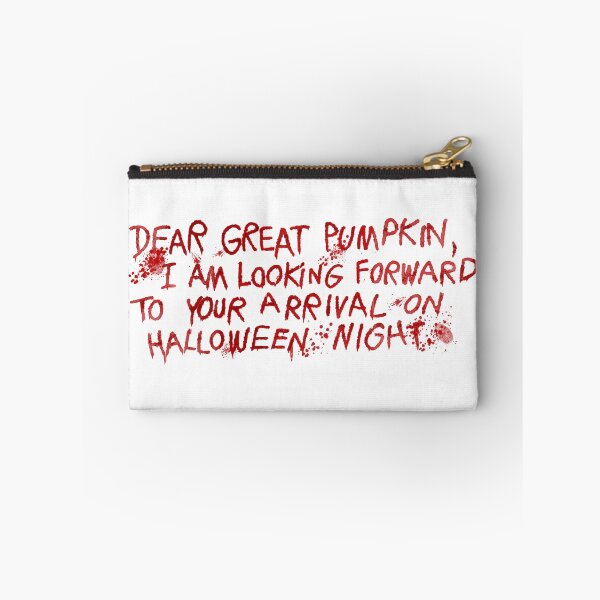 DEAR GREAT PUMPKIN,
I AM LOOKING FORWARD
TO YOUR ARRIVAL ON
HALLOWEEN NIGHT.